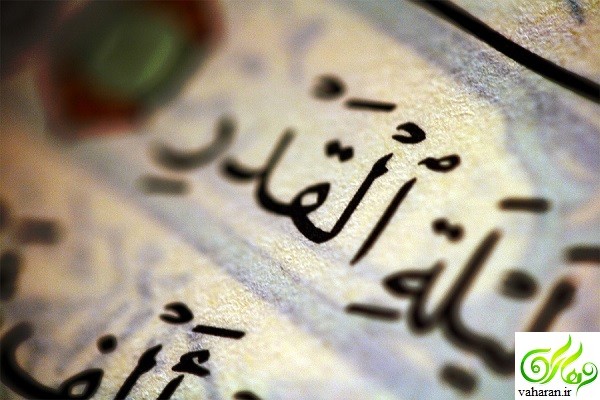 لَيْلَةِ ٱلْقَدْرِ
أَلْفِ
vaharan.ir